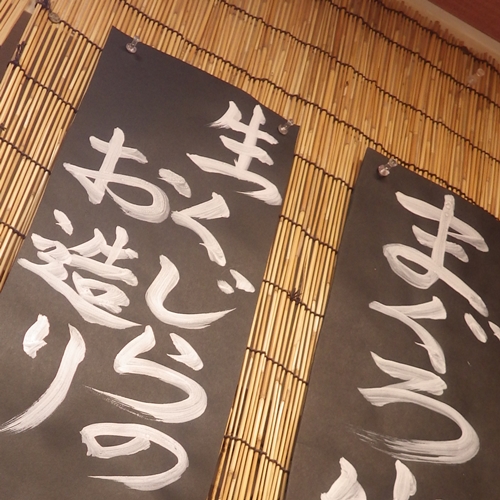 まぐろ
生くじらの
お造り